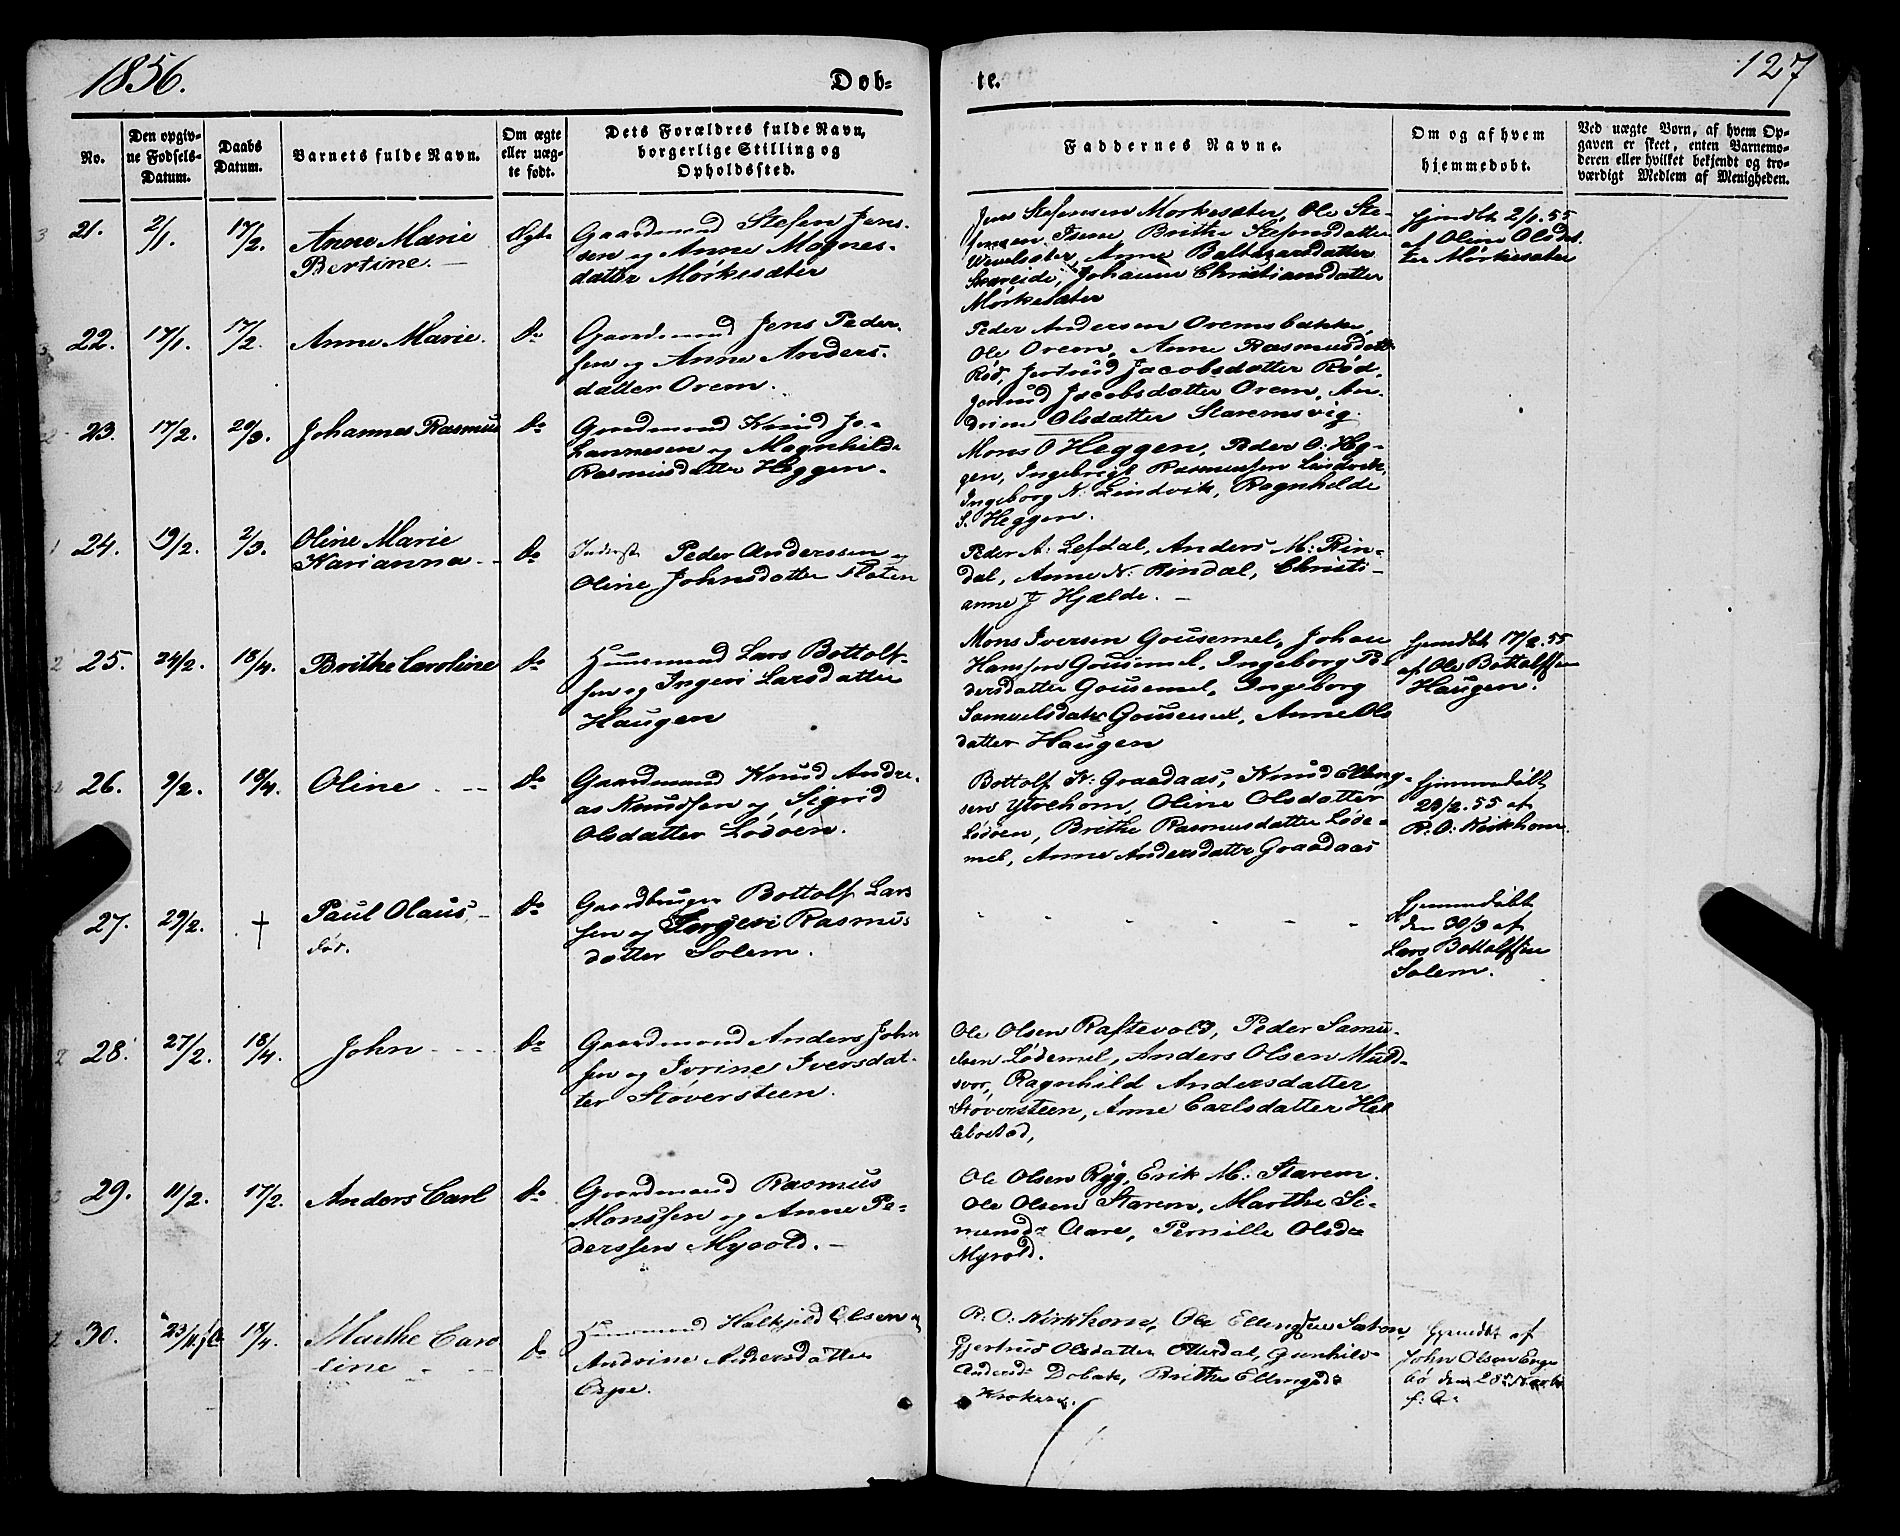 1856.
Døb-
te.
127
No.
Den opgiv-
ne Fødsels-
Datum.
Daabs
Datum.
Barnets fulde Navn.
Om ægte
eller uæg-
te født.
Dets Forældres fulde Navn,
borgerlige Stilling og
Opholdssted.
Faddernes Navne.
Om og af hvem
hjemmedøbt.
Ved uægte Børn, af hvem Op-
gaven er skeet, enten Barnemo-
deren eller hvilket bekjendt og tro-
værdigt Medlem af Menigheden.
21.
2/1.
17/2.
Anne Marie
Bertine. —
Ægte
Gaardmand Stefen Jens-
sen og Anne Mognes-
datter Mørkesæter
Jens Stefensen Morkesæter, Ole Ste-
Brithe Stefensdatter
Anne Balthazardatter
Skareide, Johanne Christiansdatter
Mørkesæter
2/1. 55
af Oline Olsdat
ter Mørkesæter
22.
17/1.
17/2.
Anne Marie.
do
Gaardmand Jens Peder-
sen og Anne Anders-
datter Orem.
Peder Andersen Oremsbakke,
Ole Orem, Anne Rasmusdatt
Rød, Jertrud Jacobsdatter Rød,
Jertrud Jacobsdatter Orem, An-
drine Olsdatter Staremsvig.
23.
17/2.
20/3.
Johannes Rasmus
do
Gaardmand Knud Jo-
hannesen og Magnhilde
Rasmusdatter Heggen.
Mons O Heggen, Peder O: Heg-
gen, Ingebrigt Rasmussen Lindvik,
Ingeborg N: Lindvik, Ragnhilde
S. Heggen.
24.
19/2.
2/3.
Oline Marie
Karianna --
do
Inderst Peder Anderssen og
Oline Johnsdatter Floten
Peder A: Lefdal, Anders M: Rin-
dal, Anne N: Rindal, Christi-
anne J Hjælde. —
25.
24/2.
18/4.
Brithe Caroline
do
Huusmand Lars Bottolf-
sen og Ingeri Larsdatter
Haugen
Mons Iversen Gousemel, Johan
Hanssen Gousemel, Ingeborg Pe
dersdatter Gousemel, Ingeborg
Samuelsdatr Gousemel, Anne Ols
datter Haugen
17/2. 55
af Ole Bottolfsen
Haugen.
26.
9/2.
18/4.
Oline - --
do
Gaardmand Knud Andre-
as Knudsen og Sigrid
Olsdatter Lødøen.
Bottolf K: Graadaas, Knud Elling-
sen Ytrehorn, Oline Olsdatter
Lødøen, Brithe Rasmusdatter Løde-
mel, Anne Andersdatter Graadaas
Hjemmedøbt
23/2. 55 af
R. O: Kirkhorn.
27.
29/2.
†
Paul Olaus, -
død.
do
Gaardbruger Bottolf Lars
sen og Ingeri Rasmus
datter Solem.
Hjemmedøbt
den 30/3 af
Lars Bottolfsen
Solem.
28.
27/2.
18/4.
John - - -
do
Gaardmand Anders John
sen og Ivrine Iversdat-
ter Støversteen.
Ole Olsen Raftevold, Peder Samu-
elsen Lødemel, Anders Olsen Muld-
svor, Ragnhild Andersdatter
Støversteen, Anne Carlsdatter Hel
lebostad,
29.
11/2.
17/2.
Anders Carl
do
Gaardmand Rasmus
Monssen og Anne Pe-
derssen Myvold. —
Ole Olsen Ryg, Erik M: Starem.
Ole Olsen Starem, Marthe Si-
mensdr Aare, Pernille Olsdr
Myvold.
30.
23/11.
18/4.
Marthe Caro
line - -
do
Huusmand Halkjeld Olsen og
Andrine Andersdatter
Espe.
R. O: Kirkhorn, Ole Ellingsen Sætren,
Gjertrud Olsdatter Otterdal, Gunhild
Andersdr Dobak, Brithe Ellingsdr
Krokene.
af
John Olsen Enge
bø den 28 Novbr
f: A: